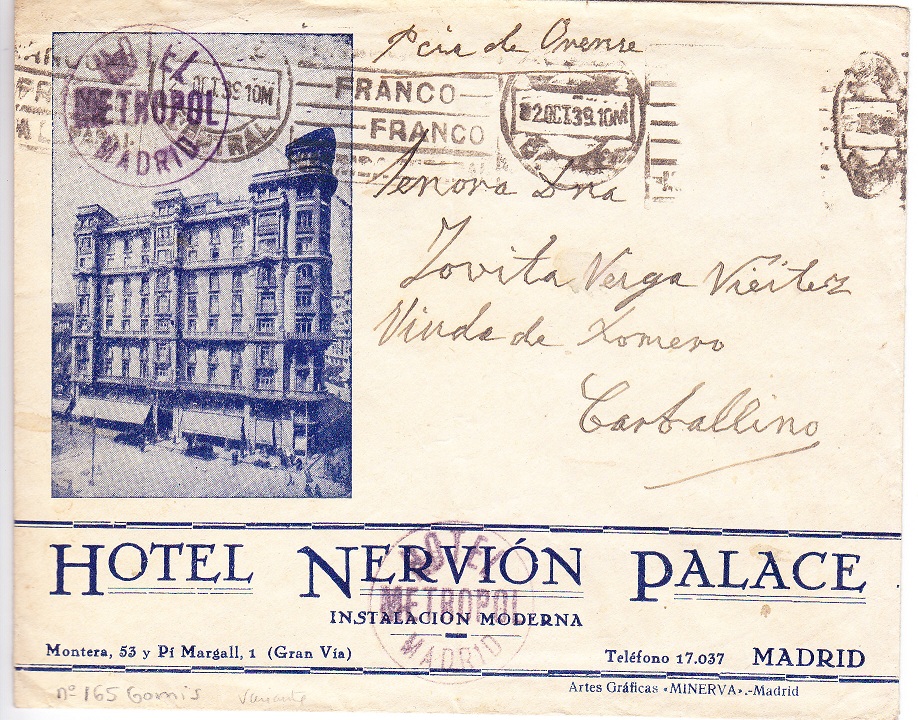 Pcia de Orense
HOTEL
METROPOL
MADRID
2 OCT.39.10M
CENTRAL
FRANCO
FRANCO
2 OCT.39.10M
Senora Dna
Jovita Verga Viéitez
Viuda de Romero
Carballino
HOTEL NERVIÓN PALACE
HOTEL
METROPOL
MADRID
INSTALACIÓN MODERNA
Montera, 53 y Pí Margall, 1 (Gran Vía)
Teléfono 17.037 MADRID
Artes Gráficas «MINERVA».-Madrid
nº 165 Gomis variante